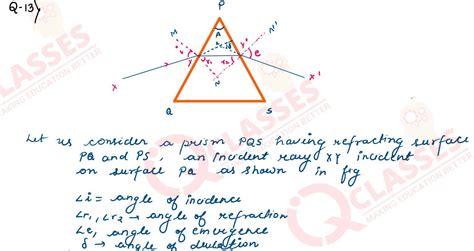 Q-13)
P
M
N'
A
δ
i
e
r₁
r₂
y
y'
N
X
X'
Q
S
Let us consider a prism PQS having refracting surface
PQ and PS, an incident ray XY, incident
on surface PQ as shown in fig
∠i = angle of incidence
∠r₁, ∠r₂ → angle of refraction
∠e, angle of emergence
δ → angle of deviation
IQ CLASSES
MAKING EDUCATION BETTER